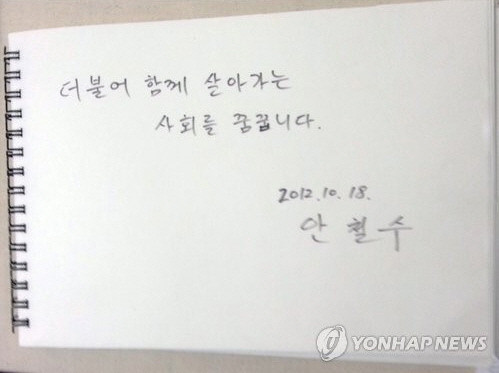 더불어 함께 살아가는
사회를 꿈꿉니다.
2012.10.18.
안철수
YONHAP NEWS